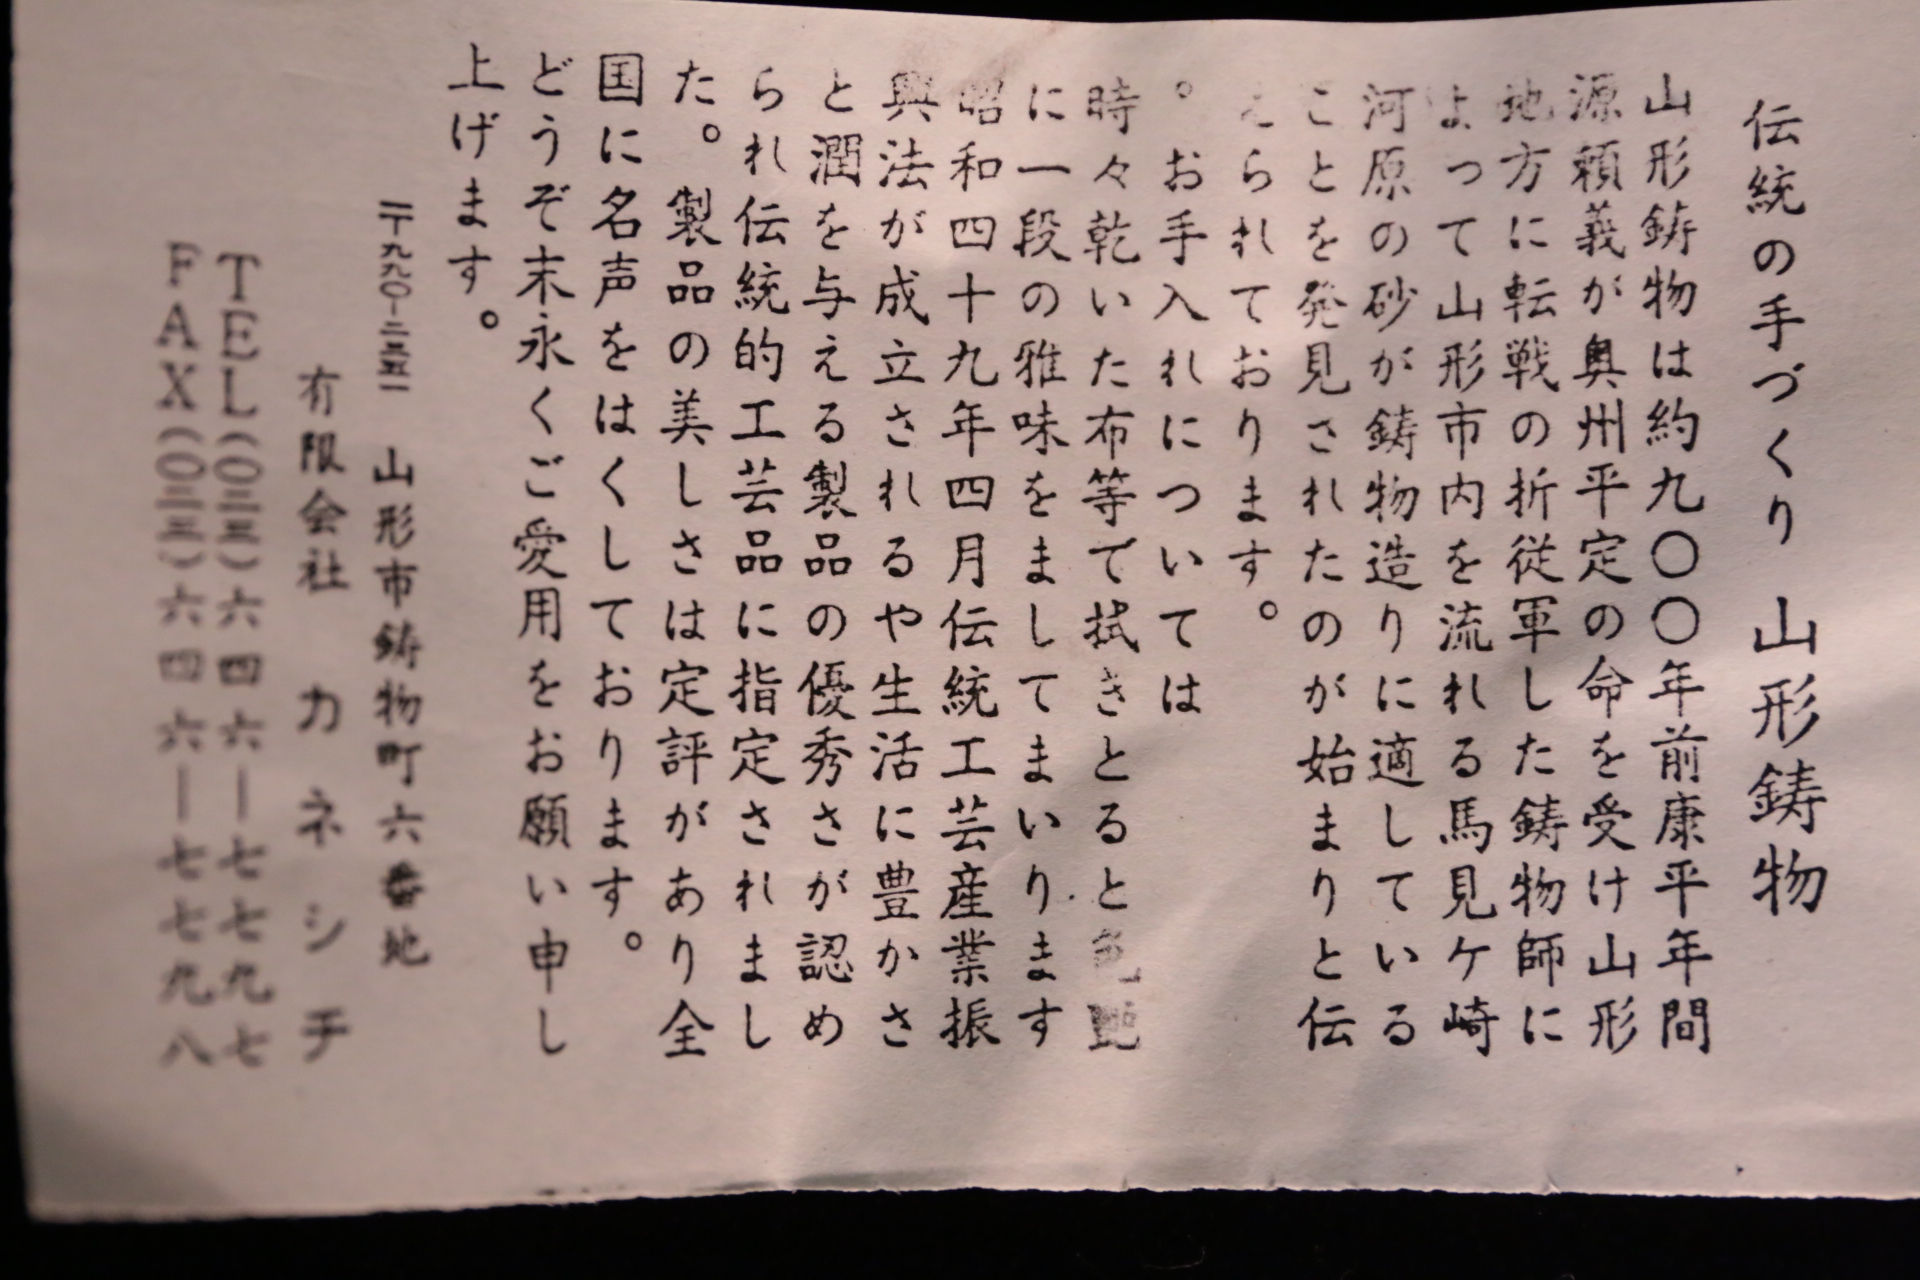 伝統の手づくり 山形鋳物
山形鋳物は約九〇〇年前康平年間
源頼義が奥州平定の命を受け山形
地方に転戦の折従軍した鋳物師に
よって山形市内を流れる馬見ケ崎
河原の砂が鋳物造りに適している
ことを発見されたのが始まりと伝
えられております。
。お手入れについては
時々乾いた布等で拭きとると色艶
に一段の雅味をましてまいります
昭和四十九年四月伝統工芸産業振
興法が成立されるや生活に豊かさ
と潤を与える製品の優秀さが認め
られ伝統的工芸品に指定されまし
た。製品の美しさは定評があり全
国に名声をはくしております。
どうぞ末永くご愛用をお願い申し
上げます。
〒九九〇-二三五一 山形市鋳物町六番地
有限会社 カネシチ
TEL(〇二三)六四六―七七九七
FAX(〇二三)六四六―七七九八